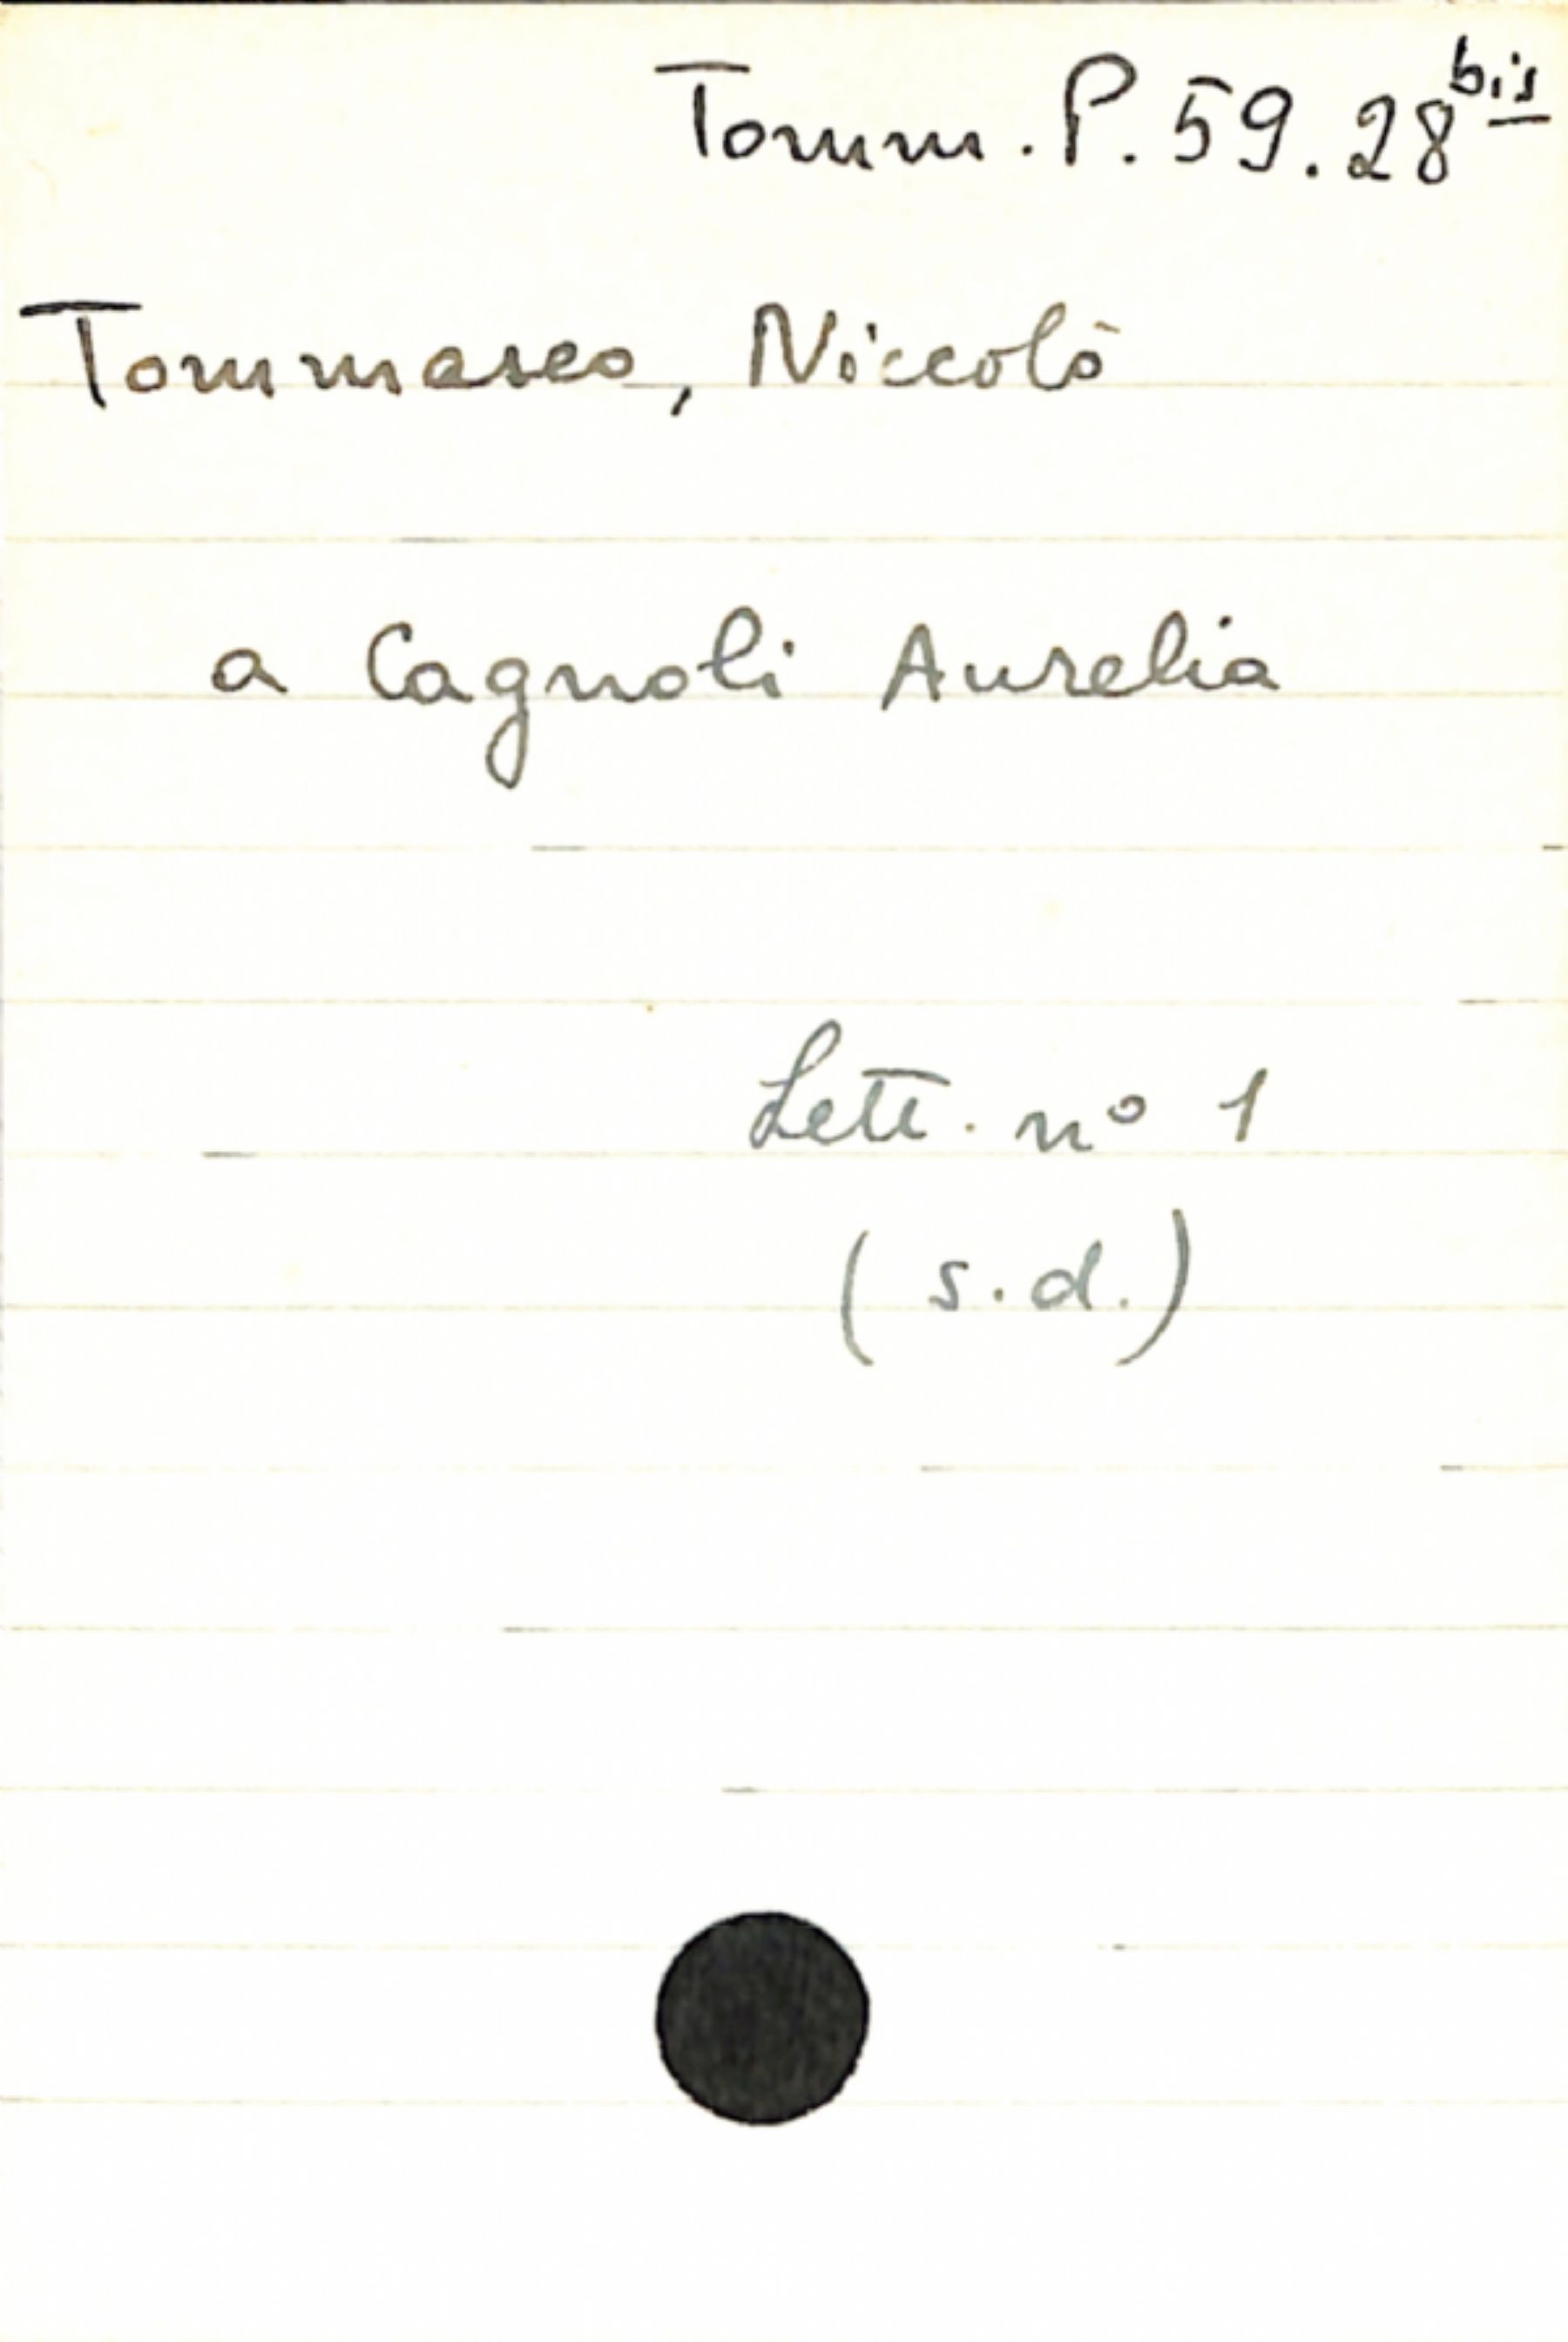 Tomm. P. 59. 28 bis
Tommaseo, Niccolò
a Cagnoli Aurelia
Lett. nº 1
(s.d.)